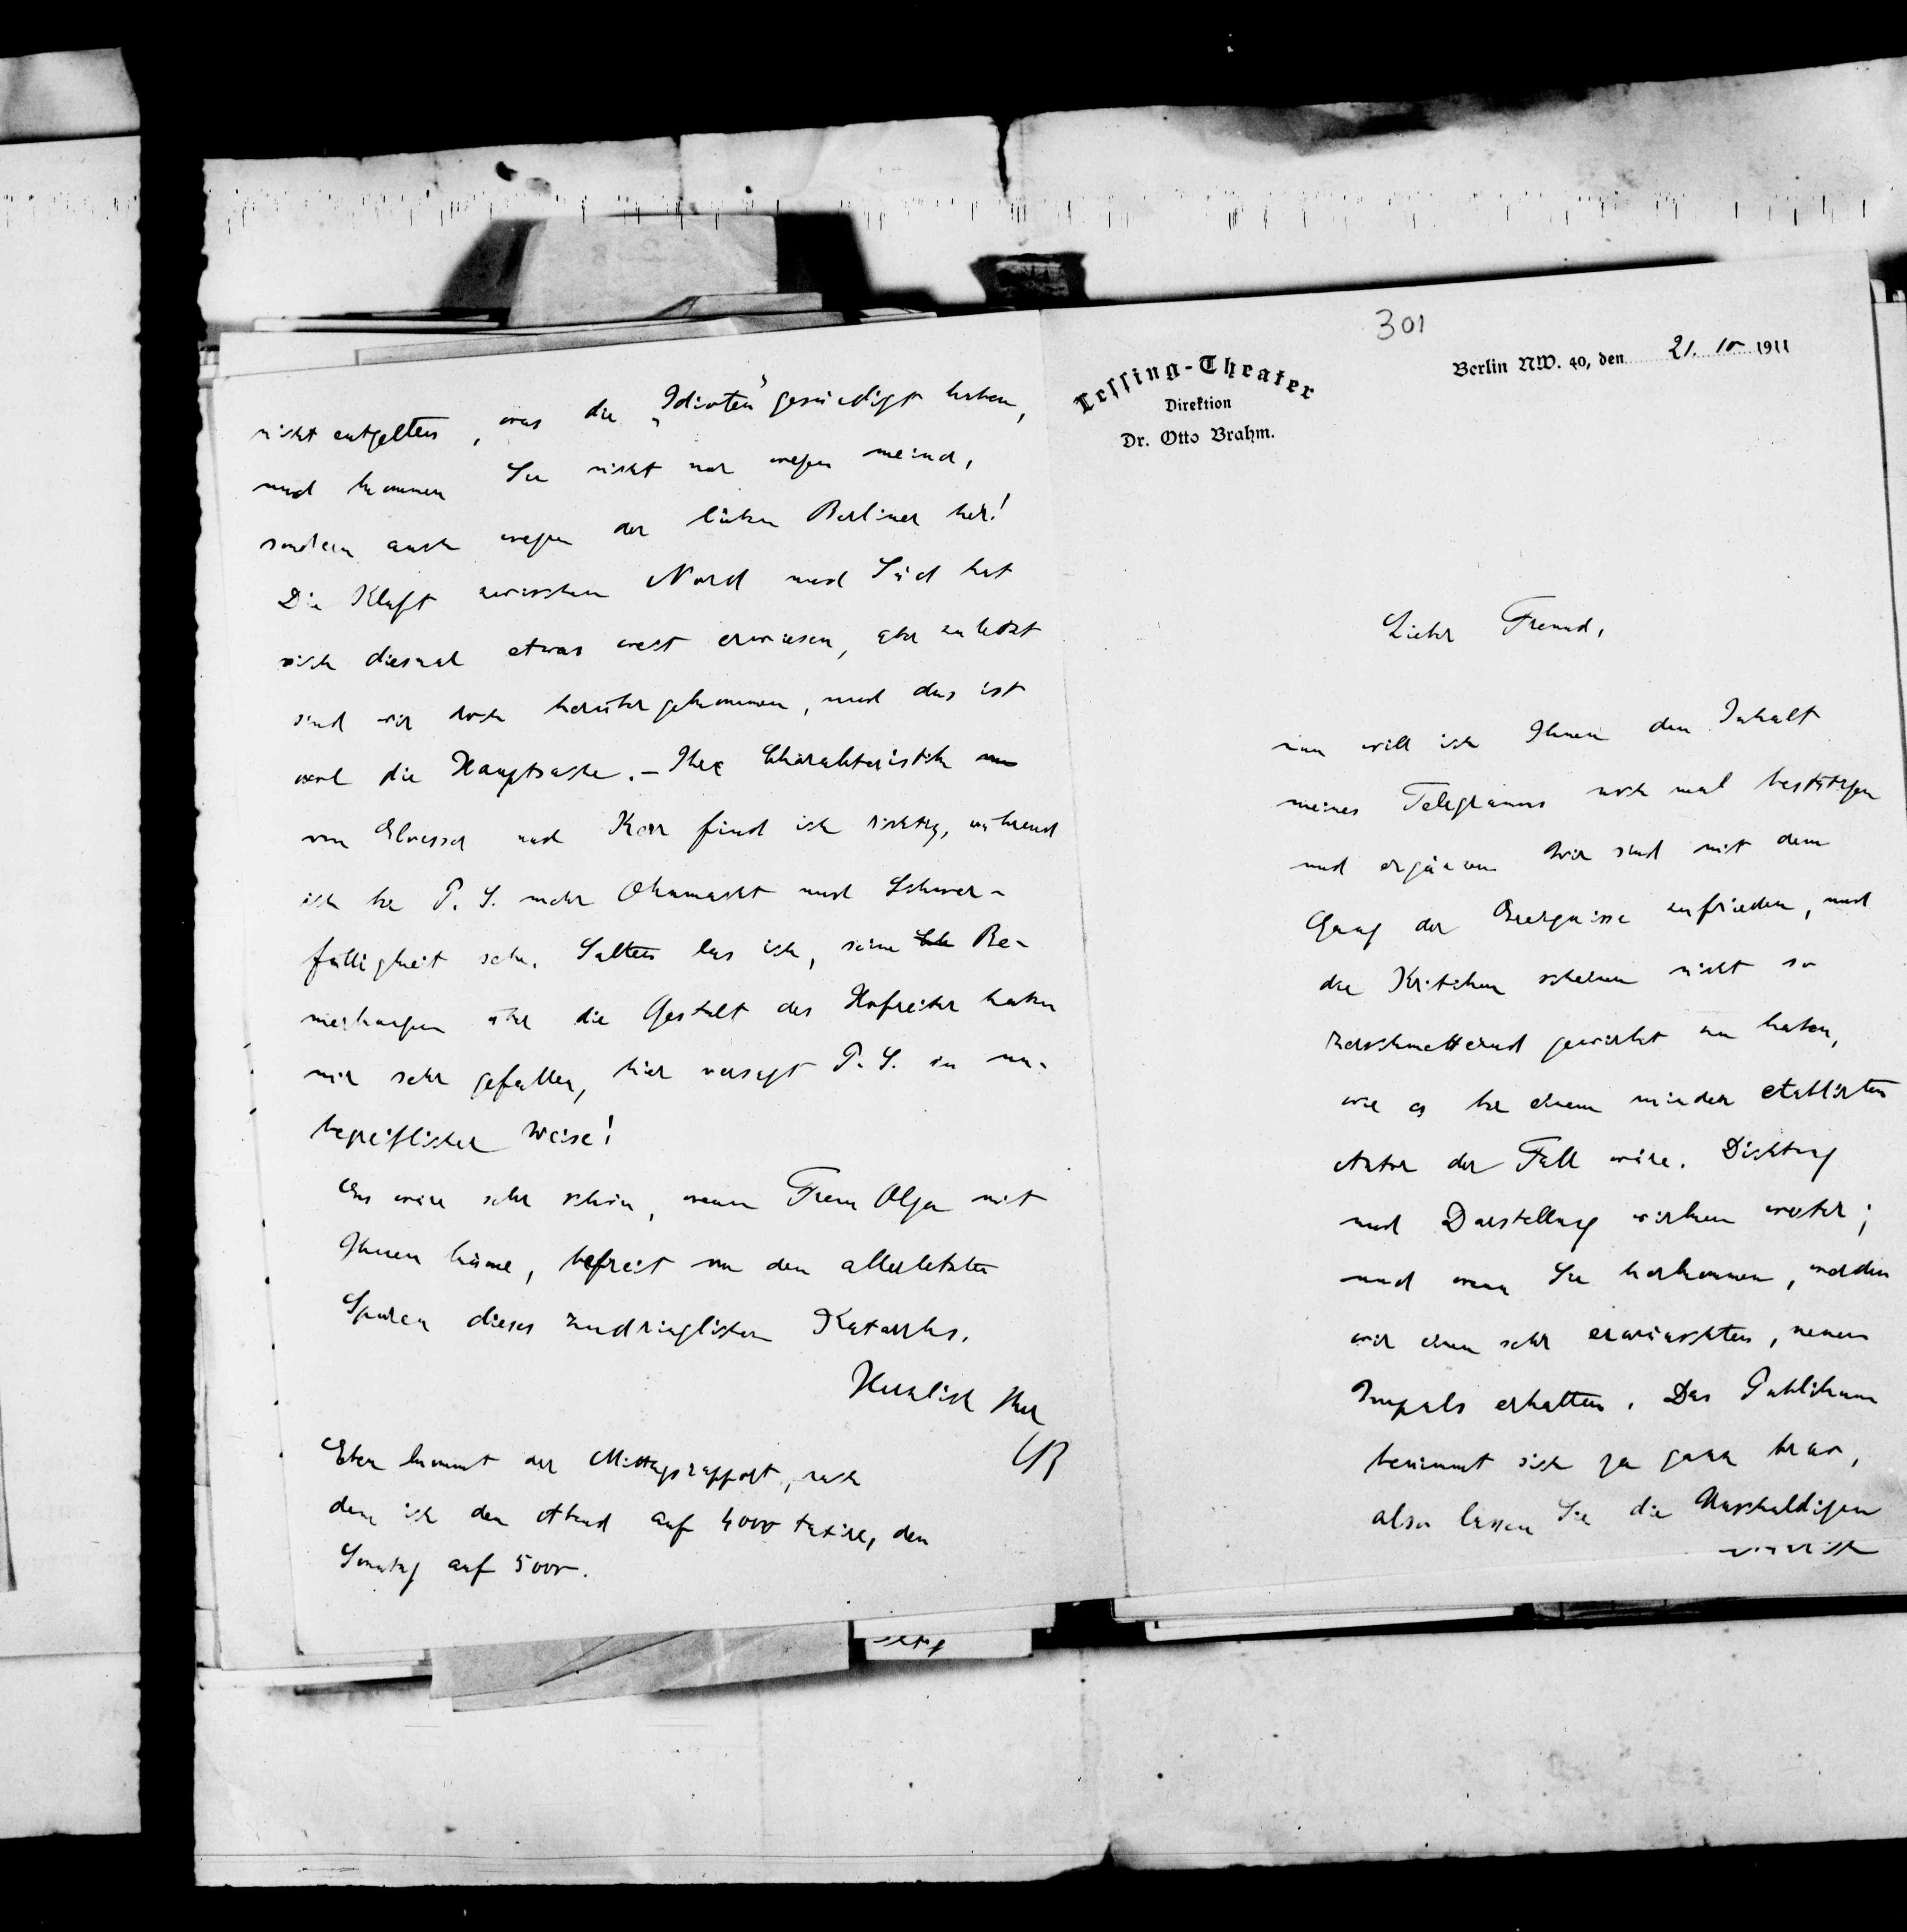 301
Lessing-Theater
Direktion
Dr. Otto Brahm.
Berlin NW. 40, den 21. 10 1911
Lieber Freund,
nun will ich Ihnen den Inhalt
meines Telegramms noch mal bestätigen
und ergänzen. Wir sind mit dem
Gang der Ereignisse zufrieden, und
die Kritiken scheinen nicht so
zerschmetternd gewirkt zu haben,
wie es bei einem minder etablirten
Autor der Fall wäre. Dichtung
und Darstellung wirken weiter;
und wenn Sie herkommen, werden
wir einen sehr erwünschten, neuen
Impuls erhalten. Das Publikum
benimmt sich ja ganz brav,
also lassen Sie die Unschuldigen
nicht entgelten, was die „Idioten“ gesündigt haben,
und kommen Sie nicht nur wegen meiner,
sondern auch wegen der lieben Berliner her!
Die Kluft zwischen Nord und Süd hat
sich diesmal etwas weit erwiesen, aber zuletzt
sind wir doch herübergekommen, und das ist
wol die Hauptsache. – Ihre Charakteristik
von Eloesser und Kerr find ich richtig, während
ich bei P. S. mehr Ohnmacht und Schwer-
fälligkeit sehe. Salten las ich, seine Be-
merkungen über die Gestalt des Hofreiter haben
mir sehr gefallen, hier versagt P. S. in un-
begreiflicher Weise!
Es wäre sehr schön, wenn Frau Olga mit
Ihnen käme, befreit von den allerletzten
Spuren dieses zudringlichen Katarrhs.
Herzlich Ihr
OB
Eben kommt der Mittagsrapport, nach
dem ich den Abend auf 4000 taxire, den
Sonntag auf 5000.